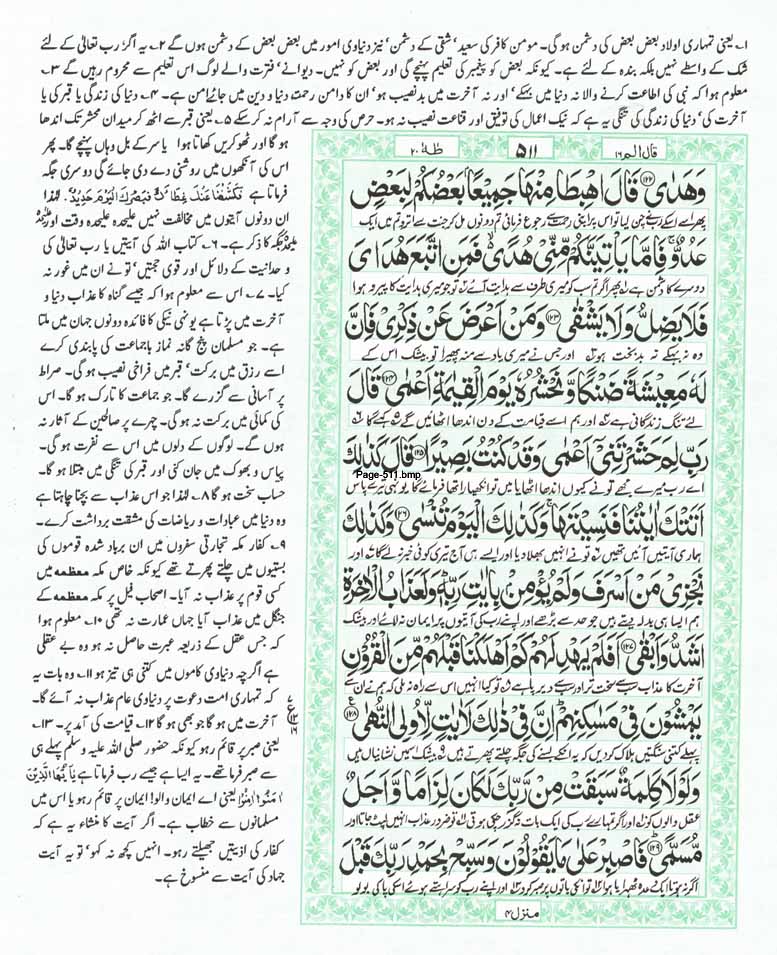 ۱۔ یعنی تمہاری اولاد بعض بعض کی دشمن ہو گی۔ مومن کافر کی سعید' شقی کے دشمن' نیز دنیاوی امور میں بعض بعض کے دشمن ہوں گے ۲۔ یہ اگر' رب تعالیٰ کے لئے
شک کے واسطے نہیں بلکہ بندہ کے لئے ہے۔ کیونکہ بعض کو پیغمبر کی تعلیم پہنچے گی اور بعض کو نہیں۔ دیوانے' فترت والے لوگ اس تعلیم سے محروم رہیں گے ۳۔
معلوم ہوا کہ نبی کی اطاعت کرنے والا نہ دنیا میں بہکے' اور نہ آخرت میں بدنصیب ہو' ان کا دامن رحمت' دنیا و دین میں جائے امن ہے۔ ۴۔ دنیا کی زندگی یا قبر کی یا
آخرت کی' دنیا کی زندگی کی تنگی یہ ہے کہ نیک اعمال کی توفیق اور قناعت نصیب نہ ہو۔ حرص کی وجہ سے آرام نہ کر سکے ۵۔ یعنی قبر سے اٹھ کر میدان محشر تک اندھا
ہو گا اور ٹھوکریں کھاتا ہوا یا سر کے بل وہاں پہنچے گا۔ پھر
اس کی آنکھوں میں روشنی دے دی جائے گی دوسری جگہ
فرماتا ہے فَكَشَفْنَا عَنْكَ غِطَآءَكَ فَبَصَرُكَ الْيَوْمَ حَدِيْدٌ۔ لہٰذا
ان دونوں آیتوں میں مخالفت نہیں علیحدہ علیحدہ وقت اور علیحدہ
علیحدہ جگہ کا ذکر ہے۔ ۶۔ کتاب اللہ کی آیتیں یا رب تعالیٰ کی
و حدانیت کے دلائل اور قوی حجتیں' تو نے ان میں غور نہ
کیا۔ ۷۔ اس سے معلوم ہوا کہ جیسے گناہ کا عذاب دنیا و
آخرت میں پڑتا ہے یونہی نیکی کا فائدہ دونوں جہان میں ملتا
ہے۔ جو مسلمان پنج گانہ نماز باجماعت کی پابندی کرے
اسے رزق میں برکت' قبر میں فراخی نصیب ہو گی۔ صراط
پر آسانی سے گزرے گا۔ جو جماعت کا تارک ہو گا۔ اس
کی کمائی میں برکت نہ ہو گی۔ چہرے پر صالحین کے آثار نہ
ہوں گے۔ لوگوں کے دلوں میں اس سے نفرت ہو گی۔
پیاس و بھوک میں جان کنی اور قبر کی تنگی میں مبتلا ہو گا۔
حساب سخت ہو گا ۸۔ لہٰذا جو اس عذاب سے بچنا چاہتا ہے
وہ دنیا میں عبادات و ریاضات کی مشقت برداشت کرے۔
۹۔ کفار مکہ تجارتی سفروں میں ان برباد شدہ قوموں کی
بستیوں میں چلتے پھرتے تھے کیونکہ خاص مکہ معظمہ میں
کسی قوم پر عذاب نہ آیا۔ اصحاب فیل پر مکہ معظمہ کے
جنگل میں عذاب آیا جہاں عمارت نہ تھی ۱۰۔ معلوم ہوا
کہ جس عقل کے ذریعہ عبرت حاصل نہ ہو وہ بے عقلی
ہے اگرچہ دنیاوی کاموں میں کتنی ہی تیز ہو ۱۱۔ وہ بات یہ
کہ تمہاری امت دعوت پر دنیاوی عام عذاب نہ آئے گا۔
آخرت میں ہو گا جو بھی ہو گا ۱۲۔ قیامت کی آمد پر۔ ۱۳۔
یعنی صبر پر قائم رہو کیونکہ حضور صلی اللہ علیہ وسلم پہلے ہی
سے صبر فرماتے تھے۔ یہ ایسا ہے جیسے رب فرماتا ہے يٰٓاَيُّهَا الَّذِيْنَ
اٰمَنُوْٓا اٰمِنُوْا یعنی اے ایمان والو! ایمان پر قائم رہو یا اس میں
مسلمانوں سے خطاب ہے۔ اگر آیت کا منشاء یہ ہے کہ
کفار کی اذیتیں جھیلتے رہو۔ انہیں کچھ نہ کہو' تو یہ آیت
جہاد کی آیت سے منسوخ ہے۔
قال الم ۱۶
۵۱۱
طٰهٰ ۲۰
وَهَدٰى ۝۱۲۲ قَالَ اهْبِطَا مِنْهَا جَمِيْعًۢا بَعْضُكُمْ لِبَعْضٍ
پھر اسے اسکے رب نے چن لیا تو اس پر اپنی رحمت سے رجوع فرمائی تم دونوں مل کر جنت سے اترو تم میں ایک
عَدُوٌّ ۚ فَاِمَّا يَاْتِيَنَّكُمْ مِّنِّيْ هُدًى ۙ فَمَنِ اتَّبَعَ هُدَايَ
دوسرے کا دشمن ہے پھر اگر تم سب کو میری طرف سے ہدایت آئے تو جو میری ہدایت کا پیرو ہوا
فَلَا يَضِلُّ وَلَا يَشْقٰى ۝۱۲۳ وَمَنْ اَعْرَضَ عَنْ ذِكْرِيْ فَاِنَّ
وہ نہ بہکے نہ بدبخت ہو اور جس نے میری یاد سے منہ پھیرا تو بیشک اس کے
لَهٗ مَعِيْشَةً ضَنْكًا وَّنَحْشُرُهٗ يَوْمَ الْقِيٰمَةِ اَعْمٰى ۝۱۲۴ قَالَ
لئے تنگ زندگانی ہے ۴ اور ہم اسے قیامت کے دن اندھا اٹھائیں گے ۵ کہے گا
رَبِّ لِمَ حَشَرْتَنِيْٓ اَعْمٰى وَقَدْ كُنْتُ بَصِيْرًا ۝۱۲۵ قَالَ كَذٰلِكَ
اے رب میرے مجھے تو نے کیوں اندھا اٹھایا میں تو انکھیارا تھا فرمائے گا یونہی تیرے پاس
Page-511.bmp
اَتَتْكَ اٰيٰتُنَا فَنَسِيْتَهَا ۚ وَكَذٰلِكَ الْيَوْمَ تُنْسٰى ۝۱۲۶ وَكَذٰلِكَ
ہماری آیتیں آئیں تھیں ۶ تو نے انہیں بھلا دیا اور ایسے ہی آج تیری کوئی خبر نہ لے گا اور
نَجْزِيْ مَنْ اَسْرَفَ وَلَمْ يُؤْمِنْۢ بِاٰيٰتِ رَبِّهٖ ۭ وَلَعَذَابُ الْاٰخِرَةِ
ہم ایسا ہی بدلہ دیتے ہیں جو حد سے بڑھے اور اپنے رب کی آیتوں پر ایمان نہ لائے اور بیشک
اَشَدُّ وَاَبْقٰى ۝۱۲۷ اَفَلَمْ يَهْدِ لَهُمْ كَمْ اَهْلَكْنَا قَبْلَهُمْ مِّنَ الْقُرُوْنِ
آخرت کا عذاب سب سے سخت تر اور سب سے دیر پا ہے تو کیا انہیں اس سے راہ نہ ملی کہ ہم نے ان سے
يَمْشُوْنَ فِيْ مَسٰكِنِهِمْ ۭ اِنَّ فِيْ ذٰلِكَ لَاٰيٰتٍ لِّاُولِي النُّهٰى ۝۱۲۸
پہلے کتنی سنگتیں ہلاک کر دیں کہ یہ انکے بسنے کی جگہ چلتے پھرتے ہیں ۹ بیشک اسمیں نشانیاں ہیں
وَلَوْلَا كَلِمَةٌ سَبَقَتْ مِنْ رَّبِّكَ لَكَانَ لِزَامًا وَّاَجَلٌ
عقل والوں کو اور اگر تمہارے رب کی ایک بات نہ گزر چکی ہوتی تو ضرور عذاب انہیں لپٹ جاتا اور
مُّسَمًّى ۝۱۲۹ فَاصْبِرْ عَلٰى مَا يَقُوْلُوْنَ وَسَبِّحْ بِحَمْدِ رَبِّكَ قَبْلَ
اگر نہ ہوتا ایک وعدہ ٹھہرایا ہوا تو انکی باتوں پر صبر کرو اور اپنے رب کو سراہتے ہوئے اسکی پاکی بولو
منزل ۴